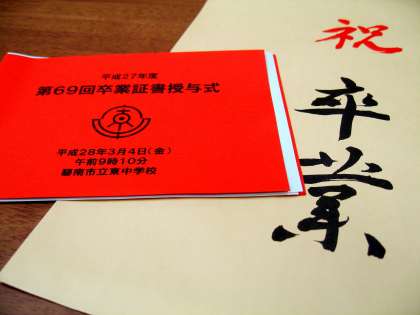 平成27年度
第69回卒業証書授与式
東
平成28年3月4日(金)
午前9時10分
碧南市立東中学校
祝
卒業